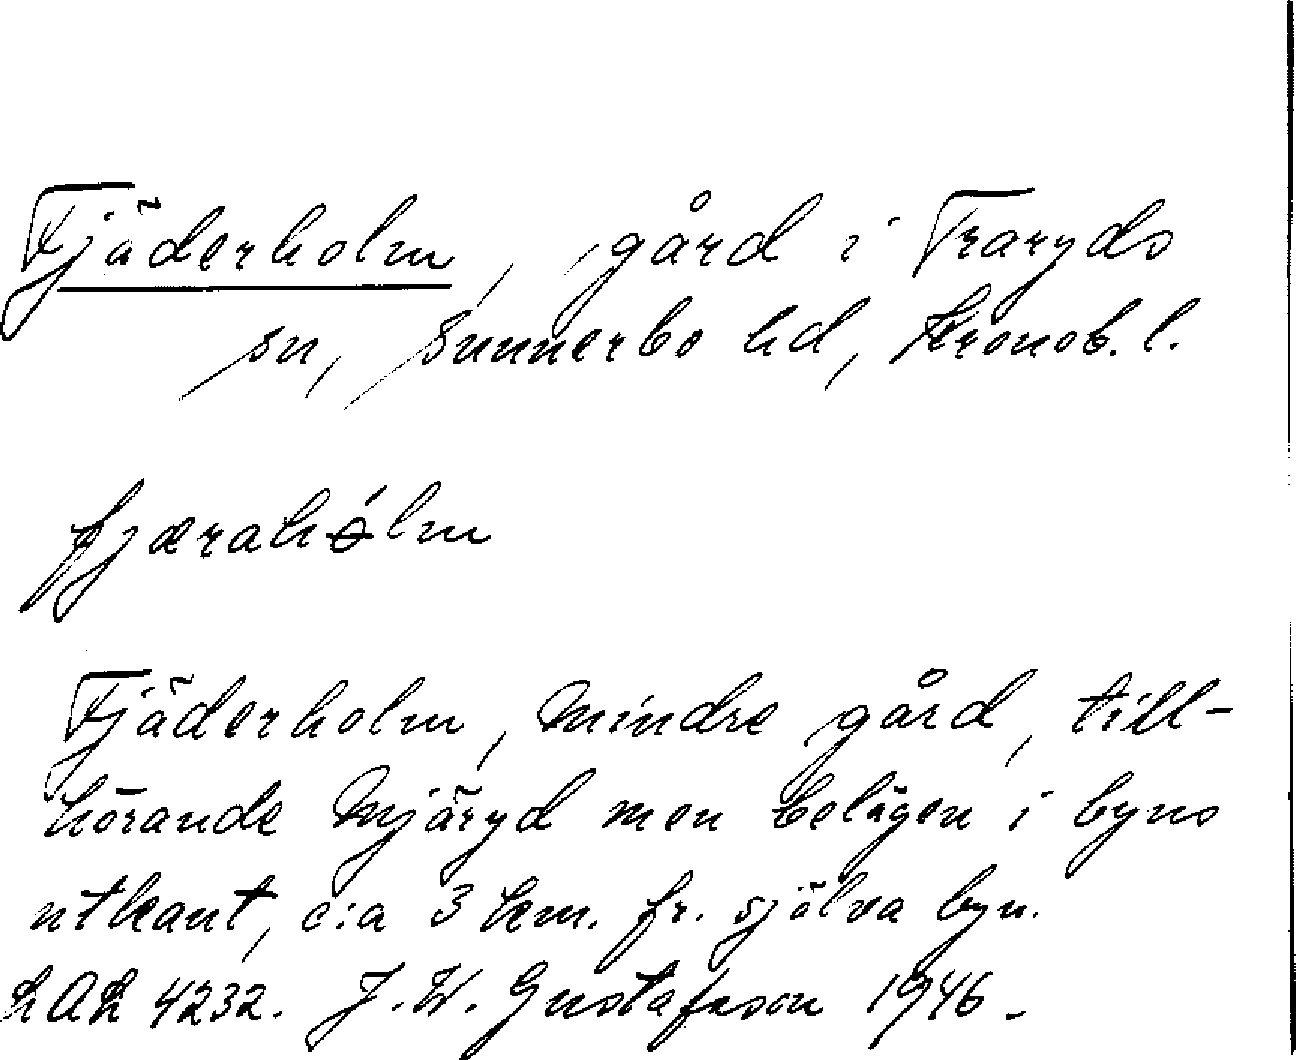 Fjäderholm, gård i Traryds
sn, Sunnerbo hd, Kronob. l.
fjærahólm
Fjäderholm, mindre gård, till-
hörande Mjäryd men belägen i byns
utkant, c:a 3 km. fr. själva byn.
LAL 4232. J. W. Gustafsson 1946.